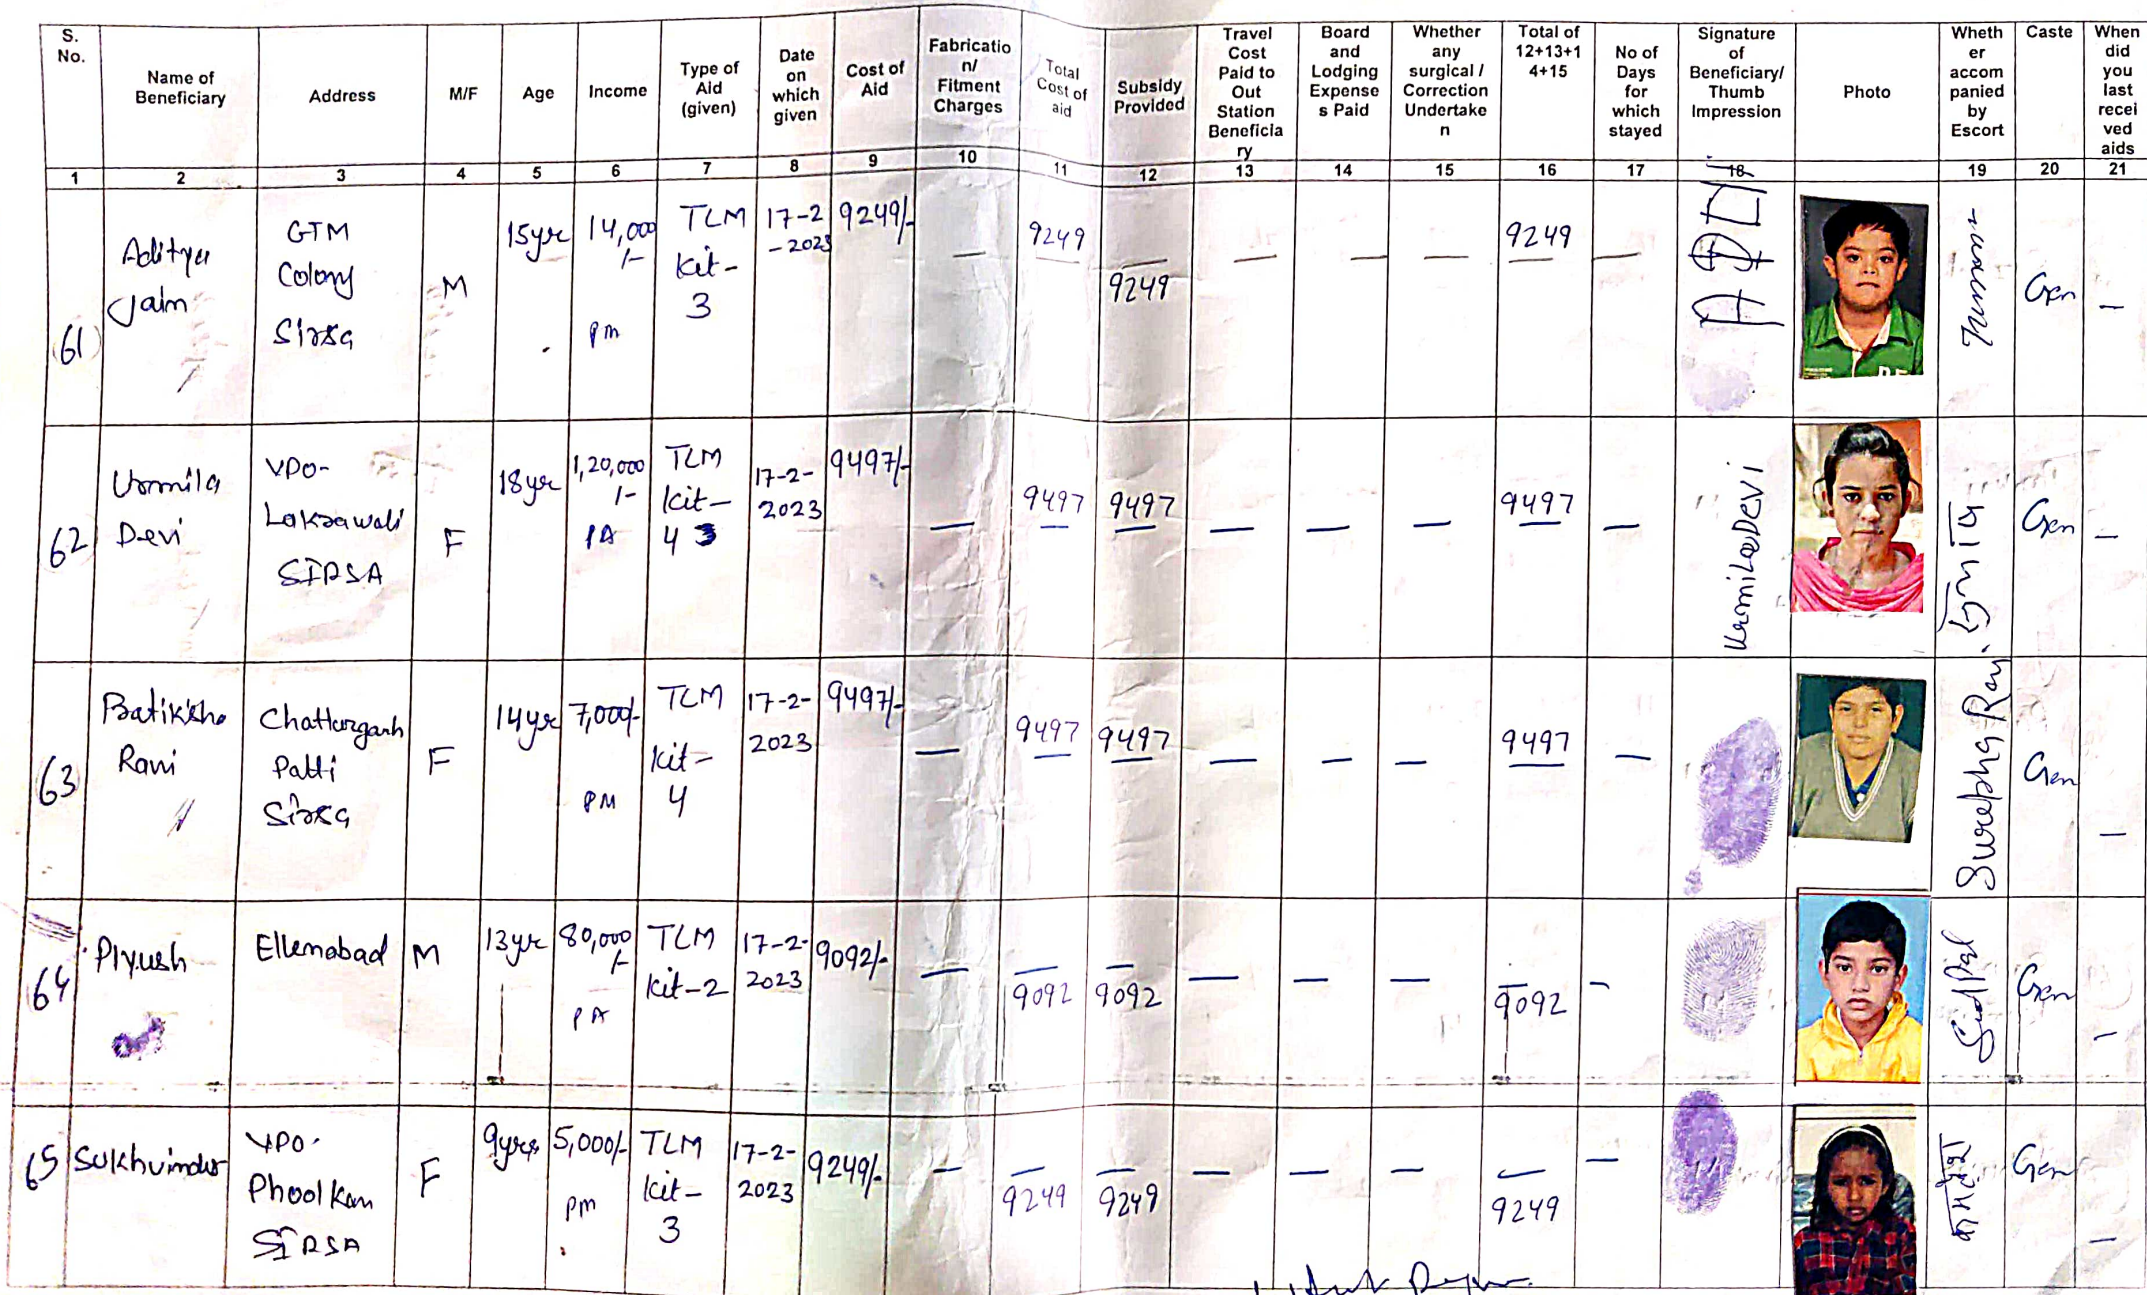 S. No.
Name of Beneficiary
Address
M/F
Age
Income
Type of Aid (given)
Date on which given
Cost of Aid
Fabricatio n/ Fitment Charges
Total Cost of aid
Subsidy Provided
Travel Cost Paid to Out Station Beneficia ry
Board and Lodging Expense s Paid
Whether any surgical / Correction Undertake n
Total of 12+13+1 4+15
No of Days for which stayed
Signature of Beneficiary/ Thumb Impression
Photo
Wheth er accom panied by Escort
Caste
When did you last recei ved aids
1 2 3 4 5 6 7 8 9 10 11 12 13 14 15 16 17 18 19 20 21
61 Aditya Jain GTM Colony Sirsa M 15yr 14,000/- PM TLM Kit-3 17-2-2023 9249/- — 9249 — 9249 — — — 9249 — Gen —
62 Urmila Devi VPO- Lakrawali SIRSA F 18yr 1,20,000/- PA TLM Kit-4 17-2-2023 9497/- — 9497 9497 — — — 9497 — UrmilaDevi Gen —
63 Patiksha Rani Chattargarh Patti Sirsa F 14yr 7,000/- PM TLM Kit-4 17-2-2023 9497/- — 9497 9497 — — — 9497 — Gen —
64 Piyush Ellenabad M 13yr 80,000/- PA TLM Kit-2 17-2-2023 9092/- — 9092 9092 — — — 9092 — Gen —
65 Sukhvinder VPO. Phoolkan SIRSA F 9yrs 5,000/- PM TLM Kit-3 17-2-2023 9249/- — 9249 9249 — — — 9249 — Gen —